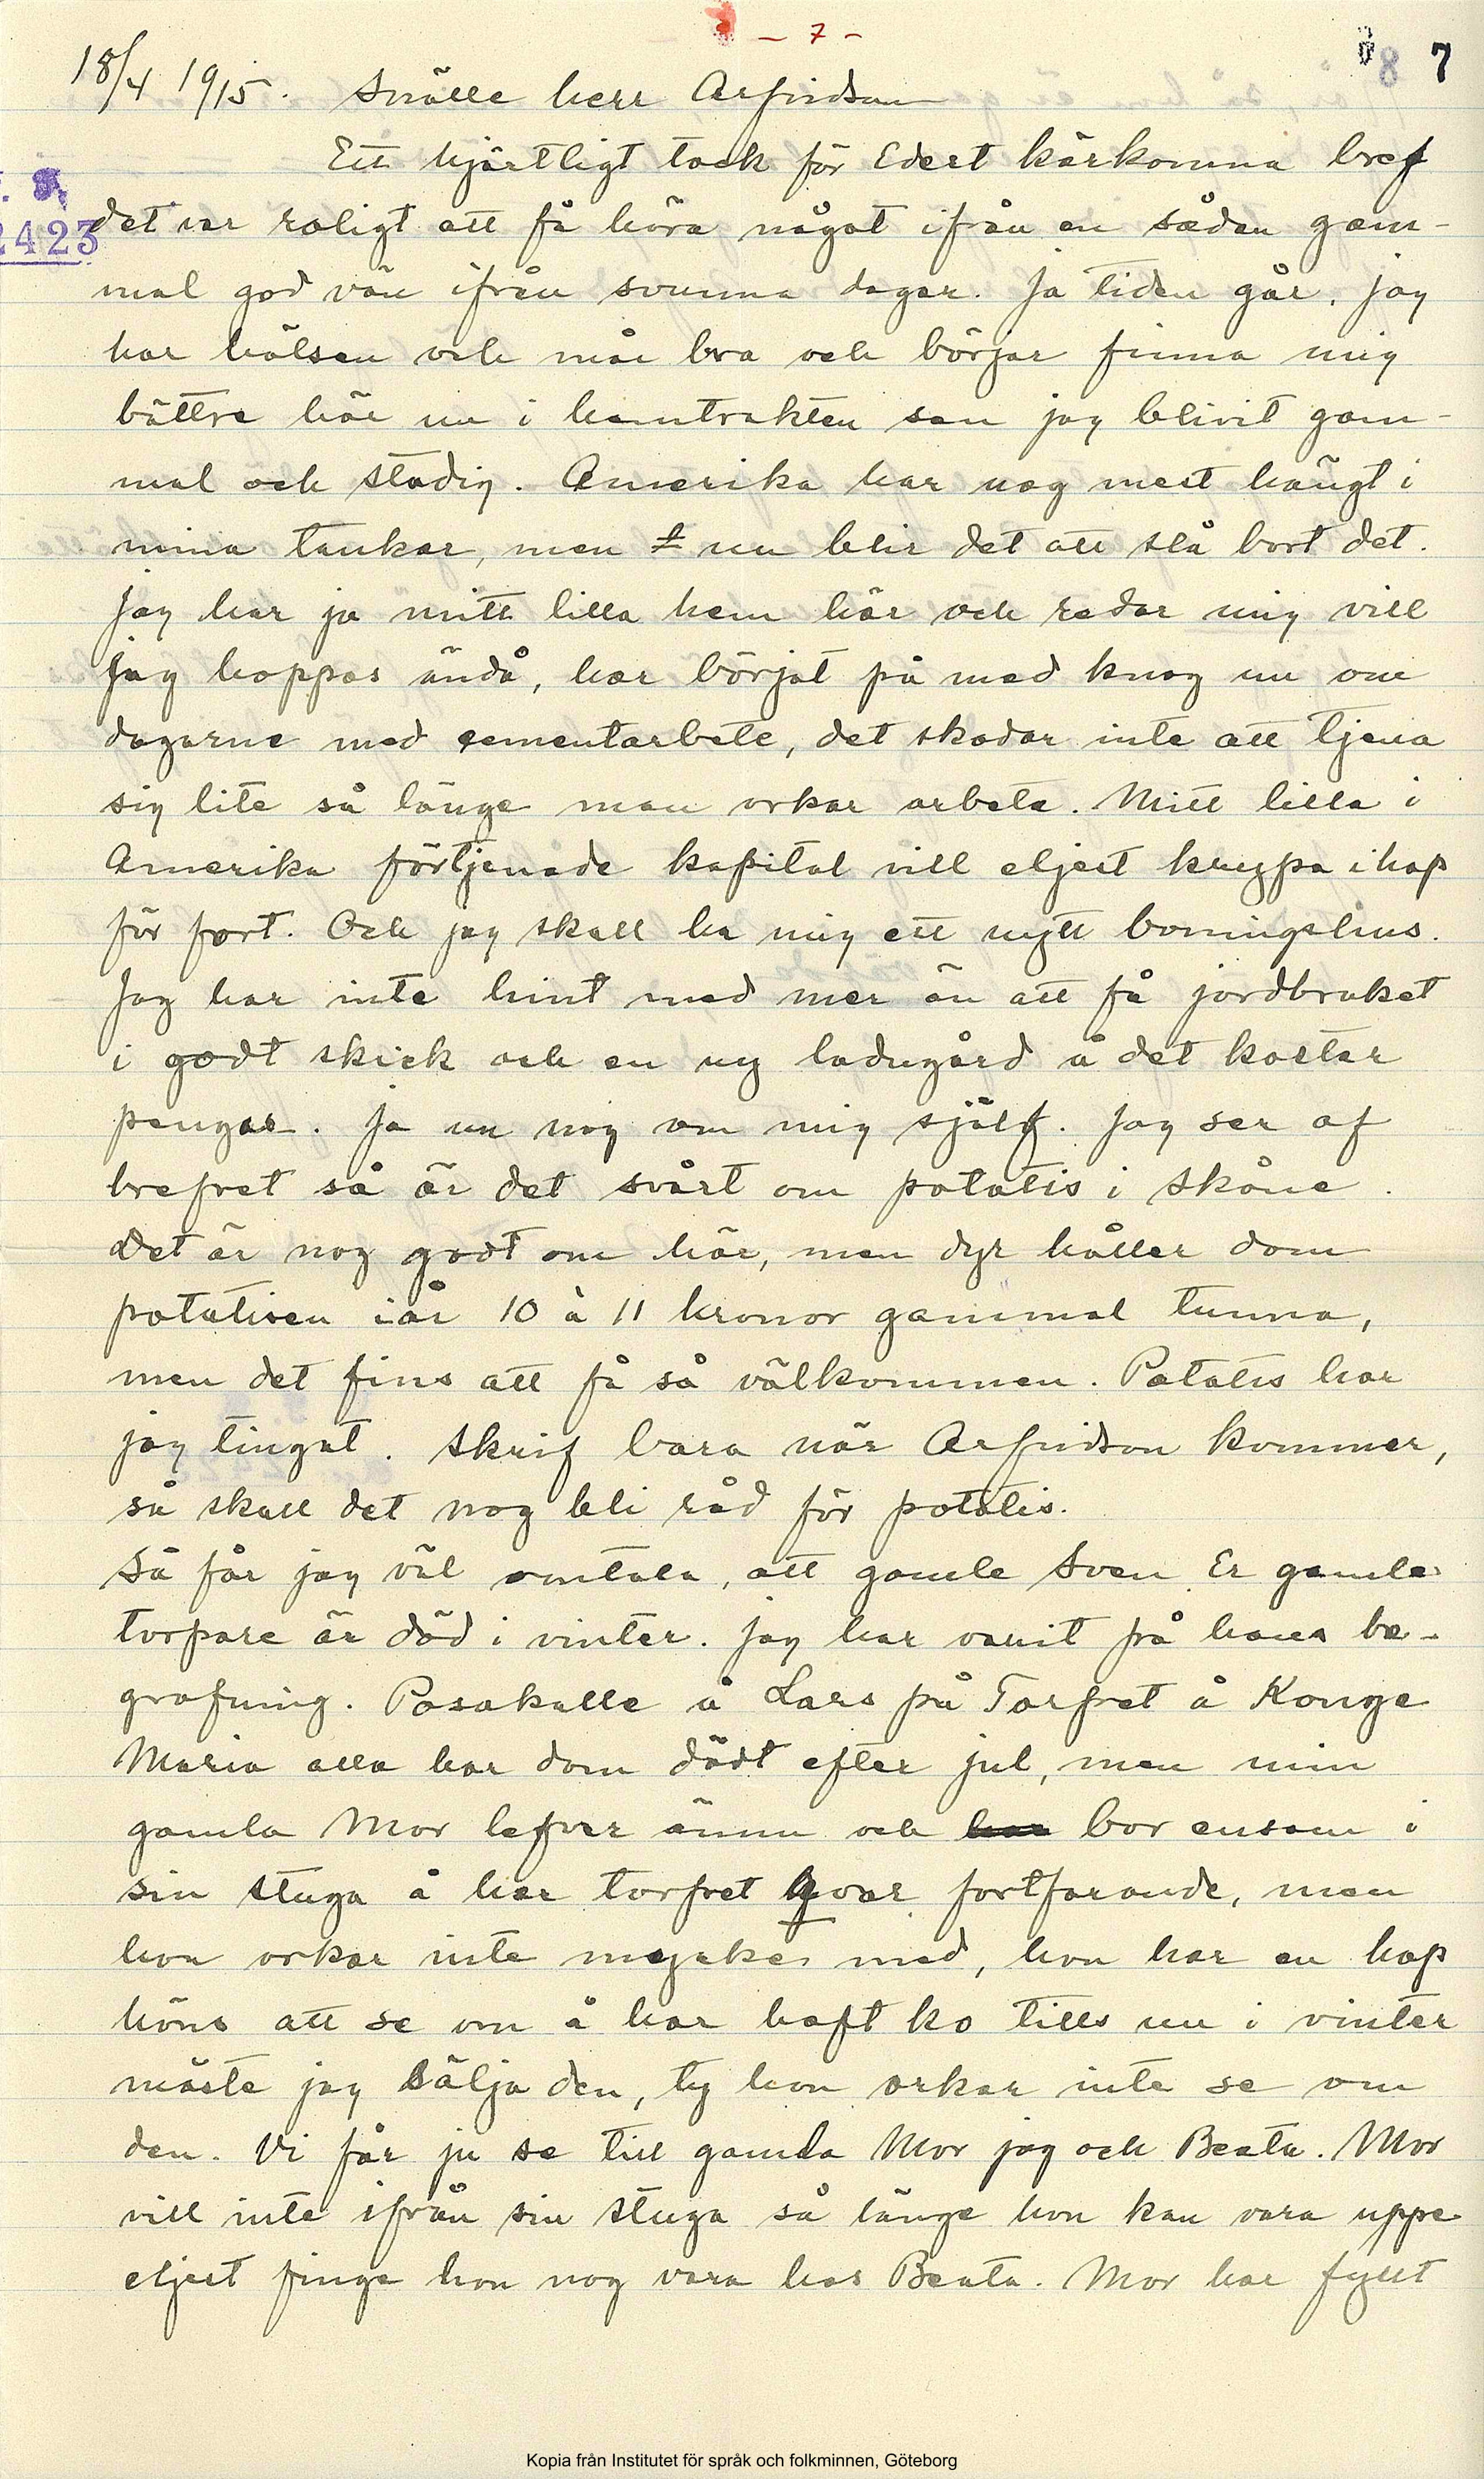 - 7 -
8 7
18/4 1915. Snälle herr Arfvidson
Ett hjärtligt tack för Edert kärkomna bref
2423
det var roligt att få höra något ifrån en sådan gam-
mal god vän ifrån svunna dagar. Ja tiden går. jag
har hälsan och mår bra och börjar finna mig
bättre här nu i hemtrakten sen jag blivit gam-
mal och stadig. Amerika har nog mest hängt i
mina tankar, men nu blir det att slå bort det.
jag har ju mitt lilla hem här och redar mig vill
jag hoppas ändå, har börjat på med knog nu om
dagarne med cementarbete, det skadar inte att tjena
sig lite så länge man orkar arbeta. Mitt lilla i
Amerika förtjenade kapital vill eljest krypa ihop
för fort. Och jag skall ha mig ett nytt boningshus.
Jag har inte hint med mer än att få jordbruket
i godt skick och en ny ladugård å det kostar
pengar. Ja nu nog om mig själf. Jag ser af
brefvet så är det svårt om potatis i Skåne.
Det är nog godt om här, men dyr håller dom
potatisen i år 10 à 11 kronor gammal tunna,
men det fins att få så välkommen. Potatis har
jag tingat. Skrif bara när Arfvidson kommer,
så skall det nog bli råd för potatis.
Så får jag väl omtala, att gamle Sven Er gamle
torpare är död i vinter. jag har varit på hans be-
grafning. Posakalle å Lars på Torpet å Konge
Maria alla har dom dödt efter jul, men min
gamla Mor lefver ännu och bor ensam i
sin stuga å har torpet qvar fortfarande, men
hon orkar inte mycke med, hon har en hop
höns att se om å har haft ko tills nu i vinter
måste jag sälja den, ty hon orkar inte se om
den. Vi får ju se till gamla Mor jag och Beata. Mor
vill inte ifrån sin stuga så länge hon kan vara uppe
eljest finge hon nog vara hos Beata. Mor har fyllt
Kopia från Institutet för språk och folkminnen, Göteborg